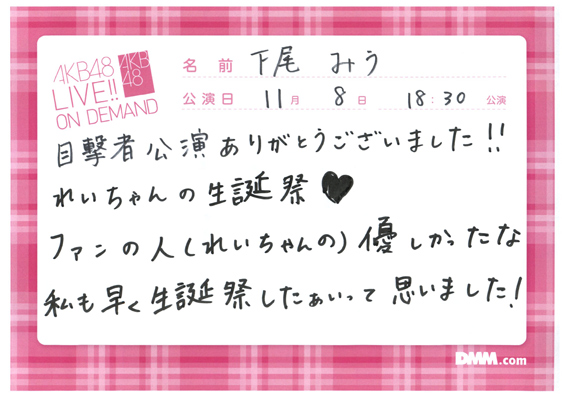 AKB48
LIVE!!
ON DEMAND
AKB
48
名前 下尾 みう
公演日 11月 8日 18:30 公演
目撃者公演ありがとうございました!!
れいちゃんの生誕祭♥
ファンの人(れいちゃんの)優しかったな
私も早く生誕祭したぁいって思いました!
DMM.com